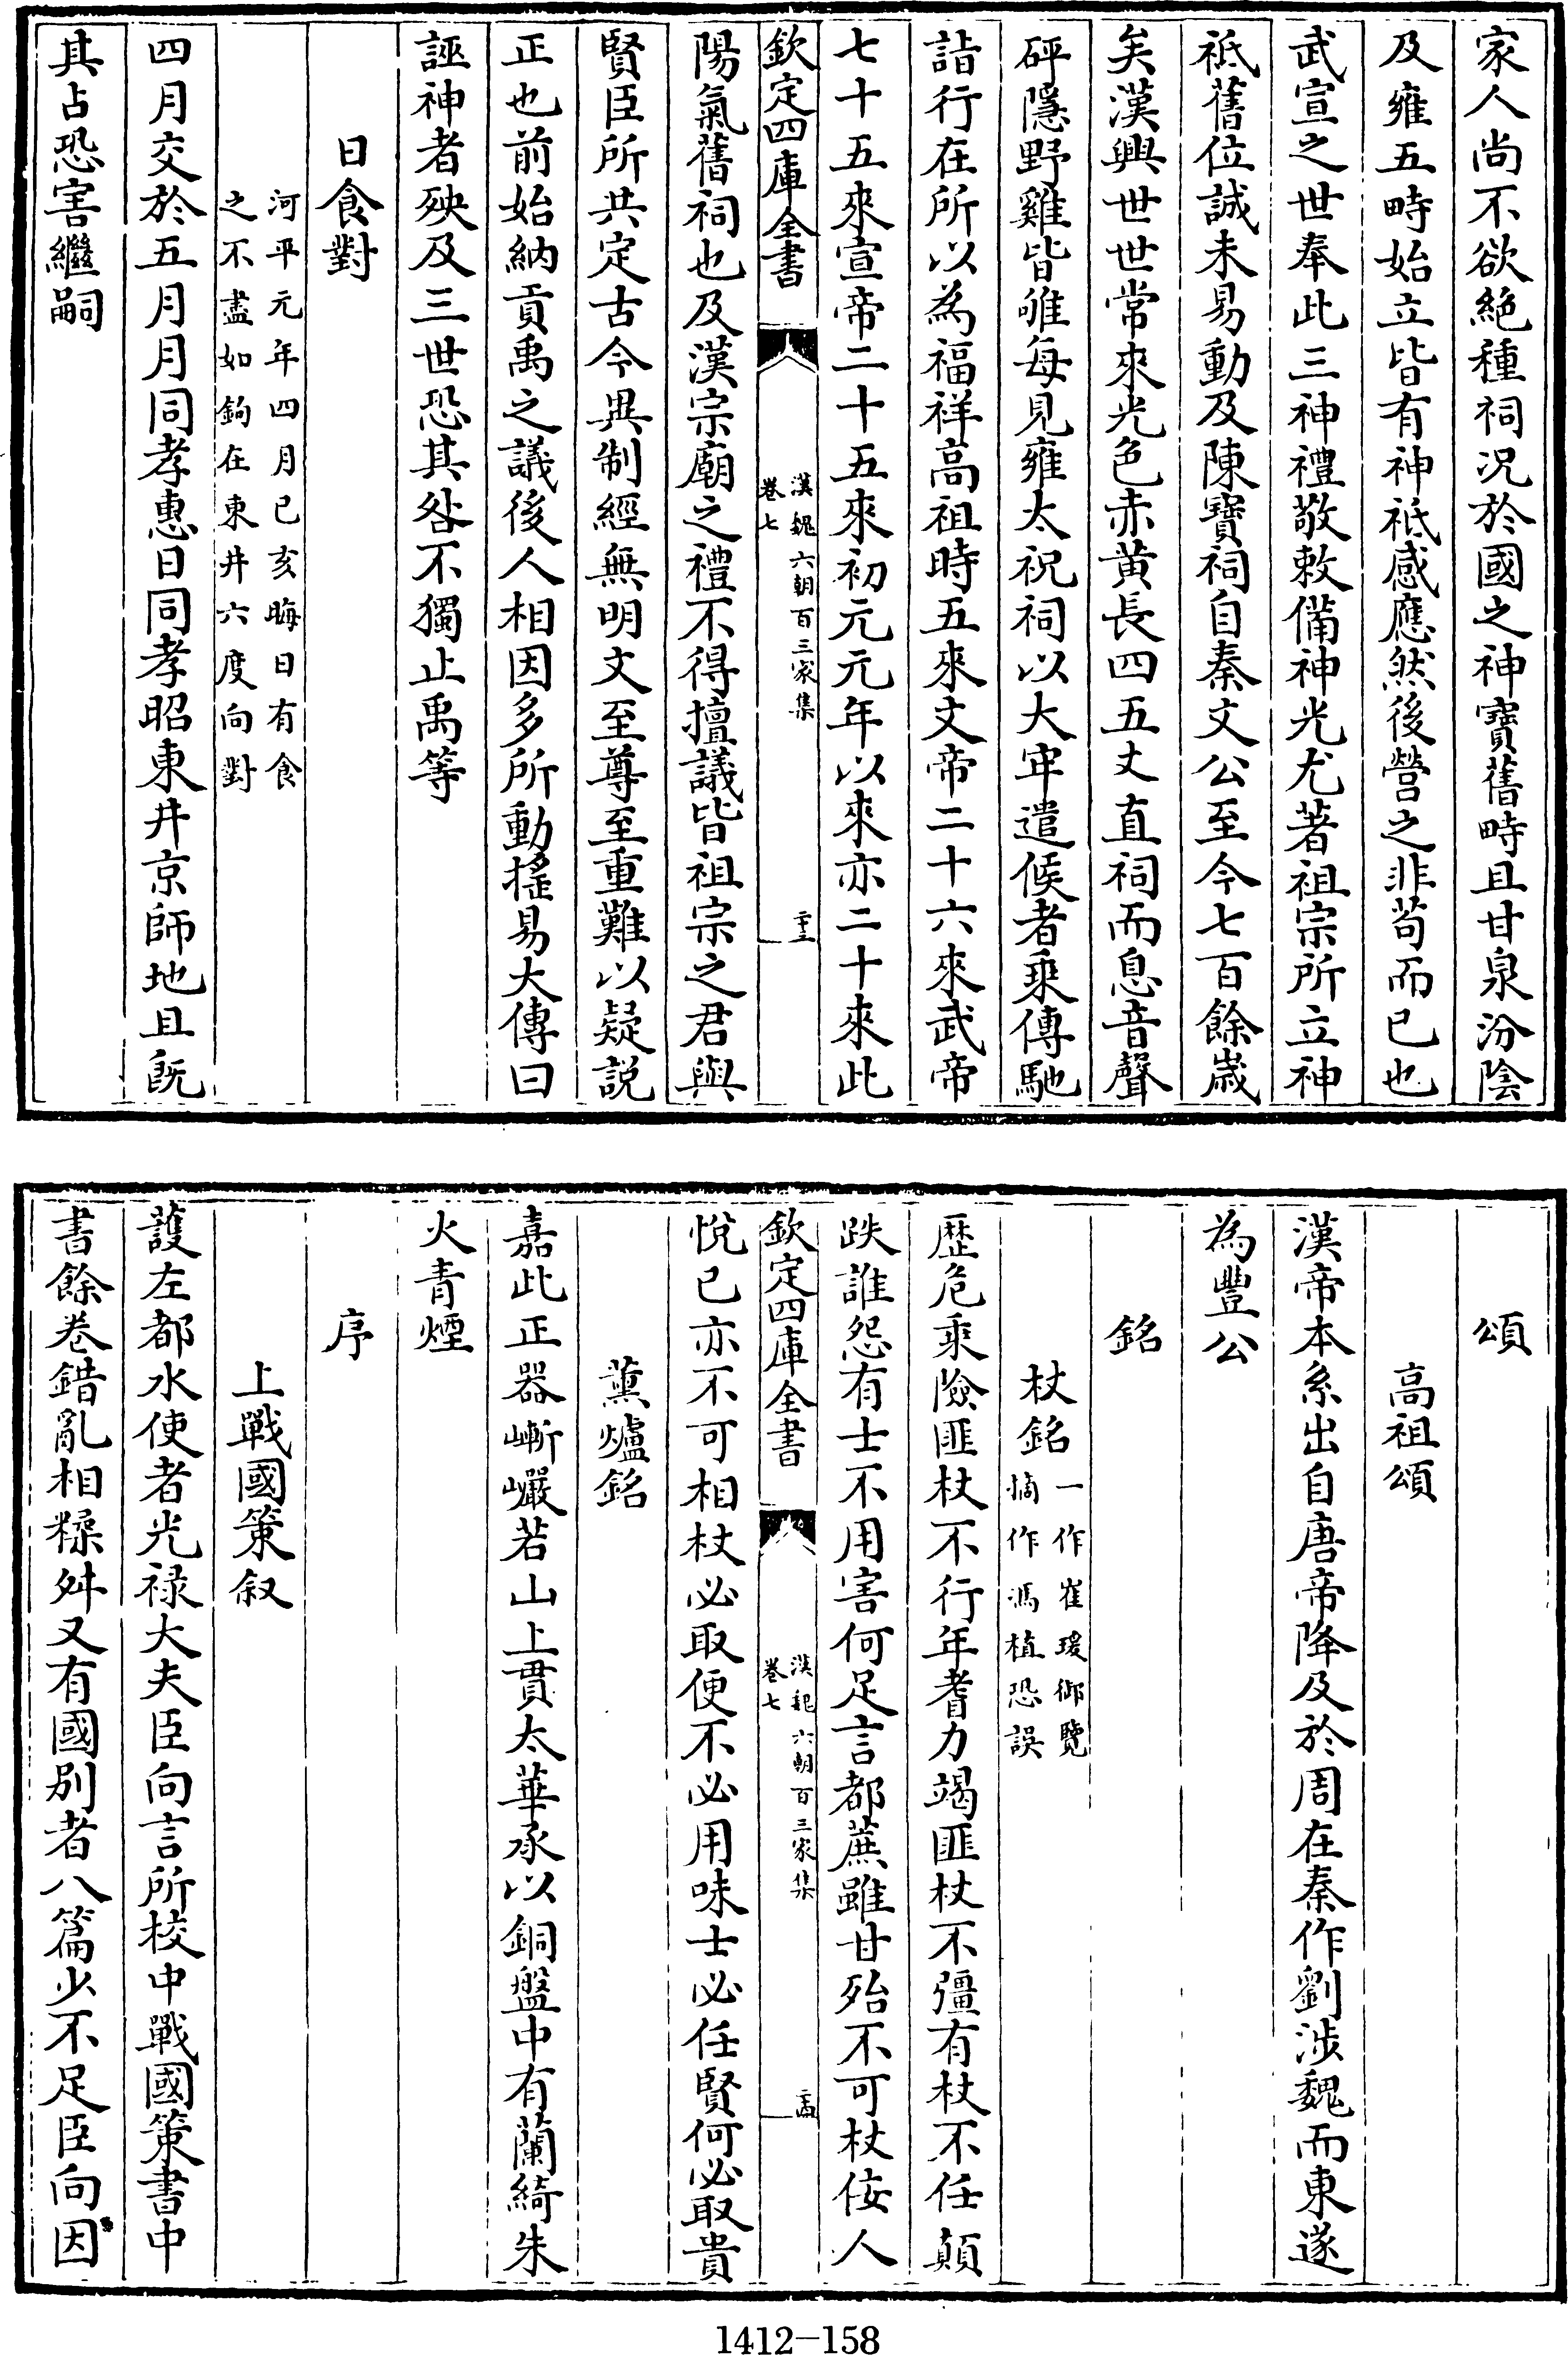 家人尚不欲絶種祠况於國之神寶舊畤且甘泉汾陰
及雍五畤始立皆有神祗感應然後營之非茍而已也
武宣之世奉此三神禮敬敕備神光尤著祖宗所立神
祗舊位誠未易動及陳寶祠自秦文公至今七百餘嵗
矣漢興世世常來光色赤黄長四五丈直祠而息音聲
砰隱野雞皆雊每見雍太祝祠以大牢遣候者乗傳馳
詣行在所以為福祥高祖時五來文帝二十六來武帝
七十五來宣帝二十五來初元元年以來亦二十來此
欽定四庫全書
漢魏六朝百三家集
卷七
二十三
陽氣舊祠也及漢宗廟之禮不得擅議皆祖宗之君與
賢臣所共定古今異制經無明文至尊至重難以疑説
正也前始納貢禹之議後人相因多所動揺易大傳曰
誣神者殃及三世恐其咎不獨止禹等
日食對
河平元年四月已亥晦日有食
之不盡如鉤在東井六度向對
四月交於五月月同孝惠日同孝昭東井京師地且旣
其占恐害繼嗣
頌
高祖頌
漢帝本系出自唐帝降及於周在秦作劉涉魏而東遂
為豐公
銘
杖銘
一作崔瑗御覽
摘作馮植恐誤
歴危乗險匪杖不行年耆力竭匪杖不彊有杖不任顛
跌誰怨有士不用害何足言都蔗雖甘殆不可杖佞人
欽定四庫全書
漢魏六朝百三家集
卷七
二十四
悅已亦不可相杖必取便不必用味士必任賢何必取貴
薰爐銘
嘉此正器嶃巖若山上貫太華承以銅盤中有蘭綺朱
火青煙
序
上戰國策叙
護左都水使者光禄大夫臣向言所校中戰國策書中
書餘卷錯亂相糅舛又有國别者八篇少不足臣向因
1412-158